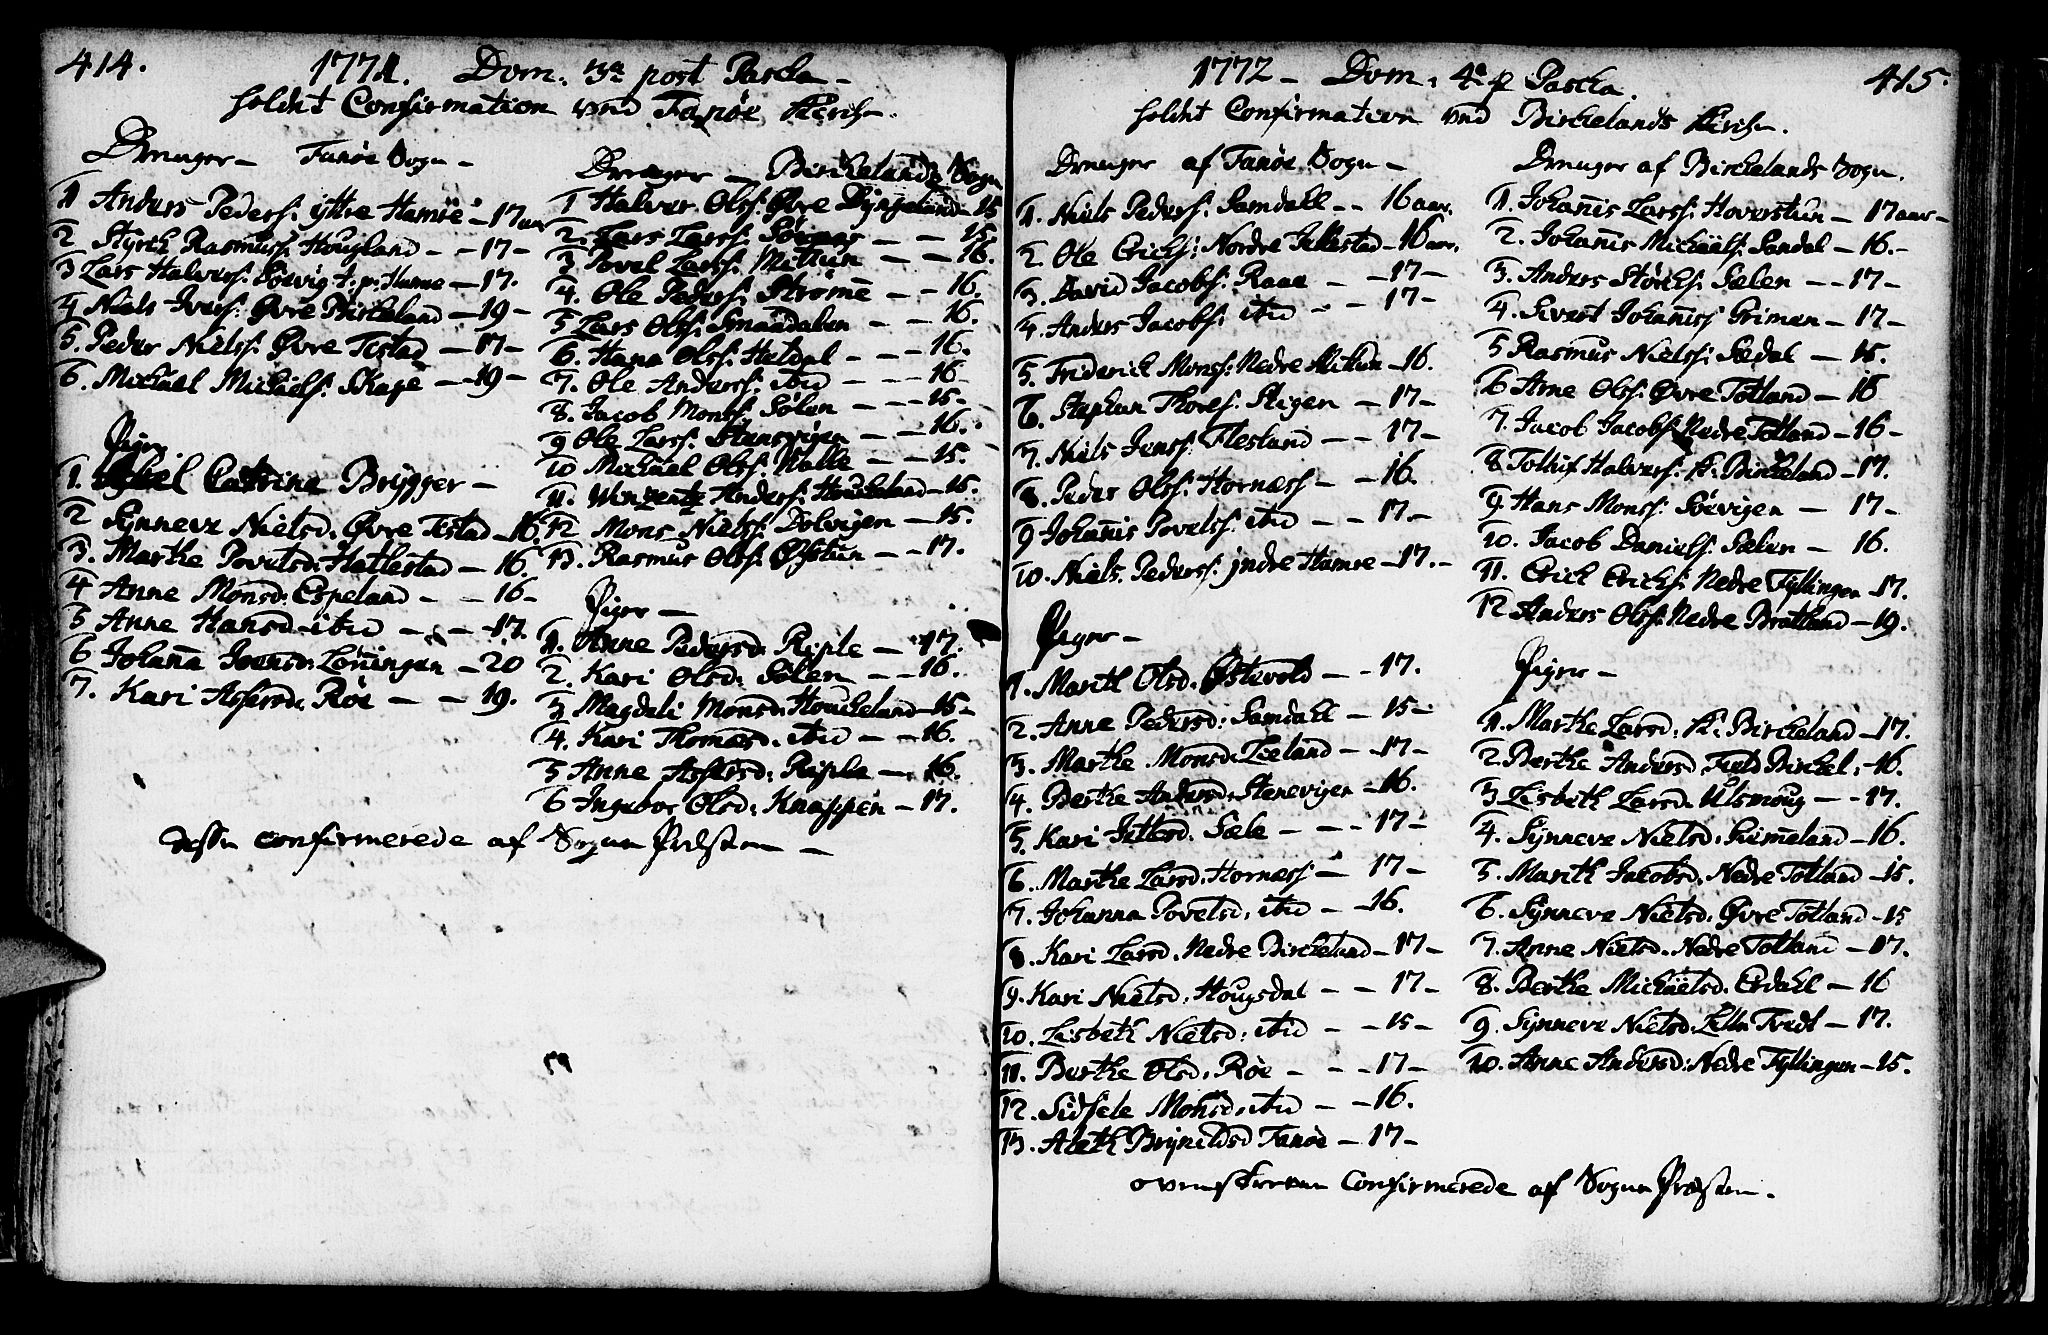 414.
1771. Dom. 3a post Pascha -
holdet Confirmation ved Fanøe Kirche.
Drenger - Fanøe Sogn -
1 Anders Peders: yttre Hamre - 17 aar
2 Styrck Rasmuss: Hougland - - 17 -
3 Lars Halvers: Sørvig t. p: Hamre - 17.
4 Niels Ivers: Øvre Birckeland - 19 -
5. Peder Nielss: Øvre Tistad - 17 -
6. Michael Michaels: Skage - 19 -
Piger
1. Catrine Brygger -
2 Synneve Nielsd. Øvre Tistad - 16.
3. Marthe Povelsd: Hatlestad - 16
4 Anne Monsd: Espeland - - 16 -
5 Anne Hansd ibid - - - 17.
6 Johanna Ivensd: Lønningen - 20
7. Kari Assersd. Røe - - 19.
Drenger - Birckelands Sogn
1 Halver Olss: Øvre Dyngeland - 15
2. Lars Larss: - - 15
3 Povel Larss: Mitthun - - 16.
4. Ole Peders: Strømme - - 16
5 Lars Olss: Smaadalen - - 16.
6. Hans Olss: Heldal - - - 16.
7. Ole Anderss: ibid - - - 16
8. Jacob Monss: Sølen - - - 15 -
9 Ole Larss: Stensvigen - - 16.
10 Michael Olss: Natle - - 15.
11. Winzentz Anders: Houckeland - 15.
12 Mons Nielss: Dolvigen - 15.
13. Rasmus Olss: Øfstun - - 17.
Piger -
1. Anne Pedersd: Riple - 17.
2. Kari Olsd: Sølen - - 16.
3 Magdeli Monsd: Houckeland - 15 -
4. Kari Thomasd. ibid - - 16.
5 Anne Assersd: Riple - 16.
6 Ingebor Olsd: Knappen - 17.
disse confirmerede af Sogne Præsten -
415.
1772 - Dom: 4a p Pascha.
holdet Confirmation ved Birckelands Kirche.
Drenger af Fanøe Sogn -
1. Niels Peders: Samdall - - 16 aar.
2. Ole Erichs: Nordre Jllestad - 16 aar.
3. David Jacobs: Raae - - 17 -
4. Anders Jacobs: ibid - - 17 -
5. Friderich Monss: Nedre Mithun - 16.
6. Stephen Thoress: Stigen - 17 -
7. Niels Jenss: Flesland - - 17 -
8. Peder Olss: Hornæss - - 16.
9 Johannis Povelss: ibid - - 17. -
10. Niels. Pederss: jndre Hamre - 17. -
Piger -
1. Marith Olsd. Østevold - - 17.
2. Anne Pedersd: Samdall - 15 -
3. Marthe Monsd: Lieland - - 17 -
4. Berthe Andersd: Stenevigen - 16.
5. Kari Jittesd. Sæle - - - 17 -
6. Marthe Larsd. Hornæss - 17 -
7. Johanna Povelsd, ibid - - 16.
8. Kari Larsd. Nedre Birckeland - 17 -
9. Kari Nielsd, Hougsdal - - 17 -
10. Lisbeth Nielsd: ibid - - 15 -
11. Berthe Olsd. Røe - - - 17 -
12. Sidsele Monsd: ibid - - 16.
13. Aleth Brynildsd Fanøe - 17 -
Drenger af Birckelands Sogn.
1. Johannis Larss: Hoverstun - 17 aar -
2. Johannis Michaels: Sandal - 16. -
3. Anders Størcks: Sælen - - 17 -
4. Sivert Johanness Grimen - 17 -
5 Rasmus Nielss: Sædal - 15.
6 Arne Olss: Øvre Totland - 16
7. Jacob Jacobs: Nedre Totland - 16 -
8 Tollif Halverss: K. Birckeland - 17.
9 Hans Monss: Sørvigen - 17 -
10. Jacob Daniels: Sælen - 16.
11. Erick Erichs: Nedre Tyllingen - 17.
12 Anders Olss: Nedre Bratland - 19.
Piger -
1. Marthe Larsd, K. Birckeland - 17.
2 Berthe Andersd, Field Birckel: - 16.
3 Lisbeth Larsd. Ulsmoug - - 17.
4. Synneve Nielsd: Grimeland - 16.
5. Marith Jacobsd. Nedre Totland - 15.
6. Synneve Nielsd. Øvre Totland - 15
7. Anne Nielsd. Nedre Totland - 17.
8. Berthe Michaelsd. Erdahl - 16
9. Synneve Nielsd. Lille Tvedt - 17.
10. Anne Andersd: Nedre Tyllingen - 15.
ovenskrevne Confirmerede af Sogne Præsten.